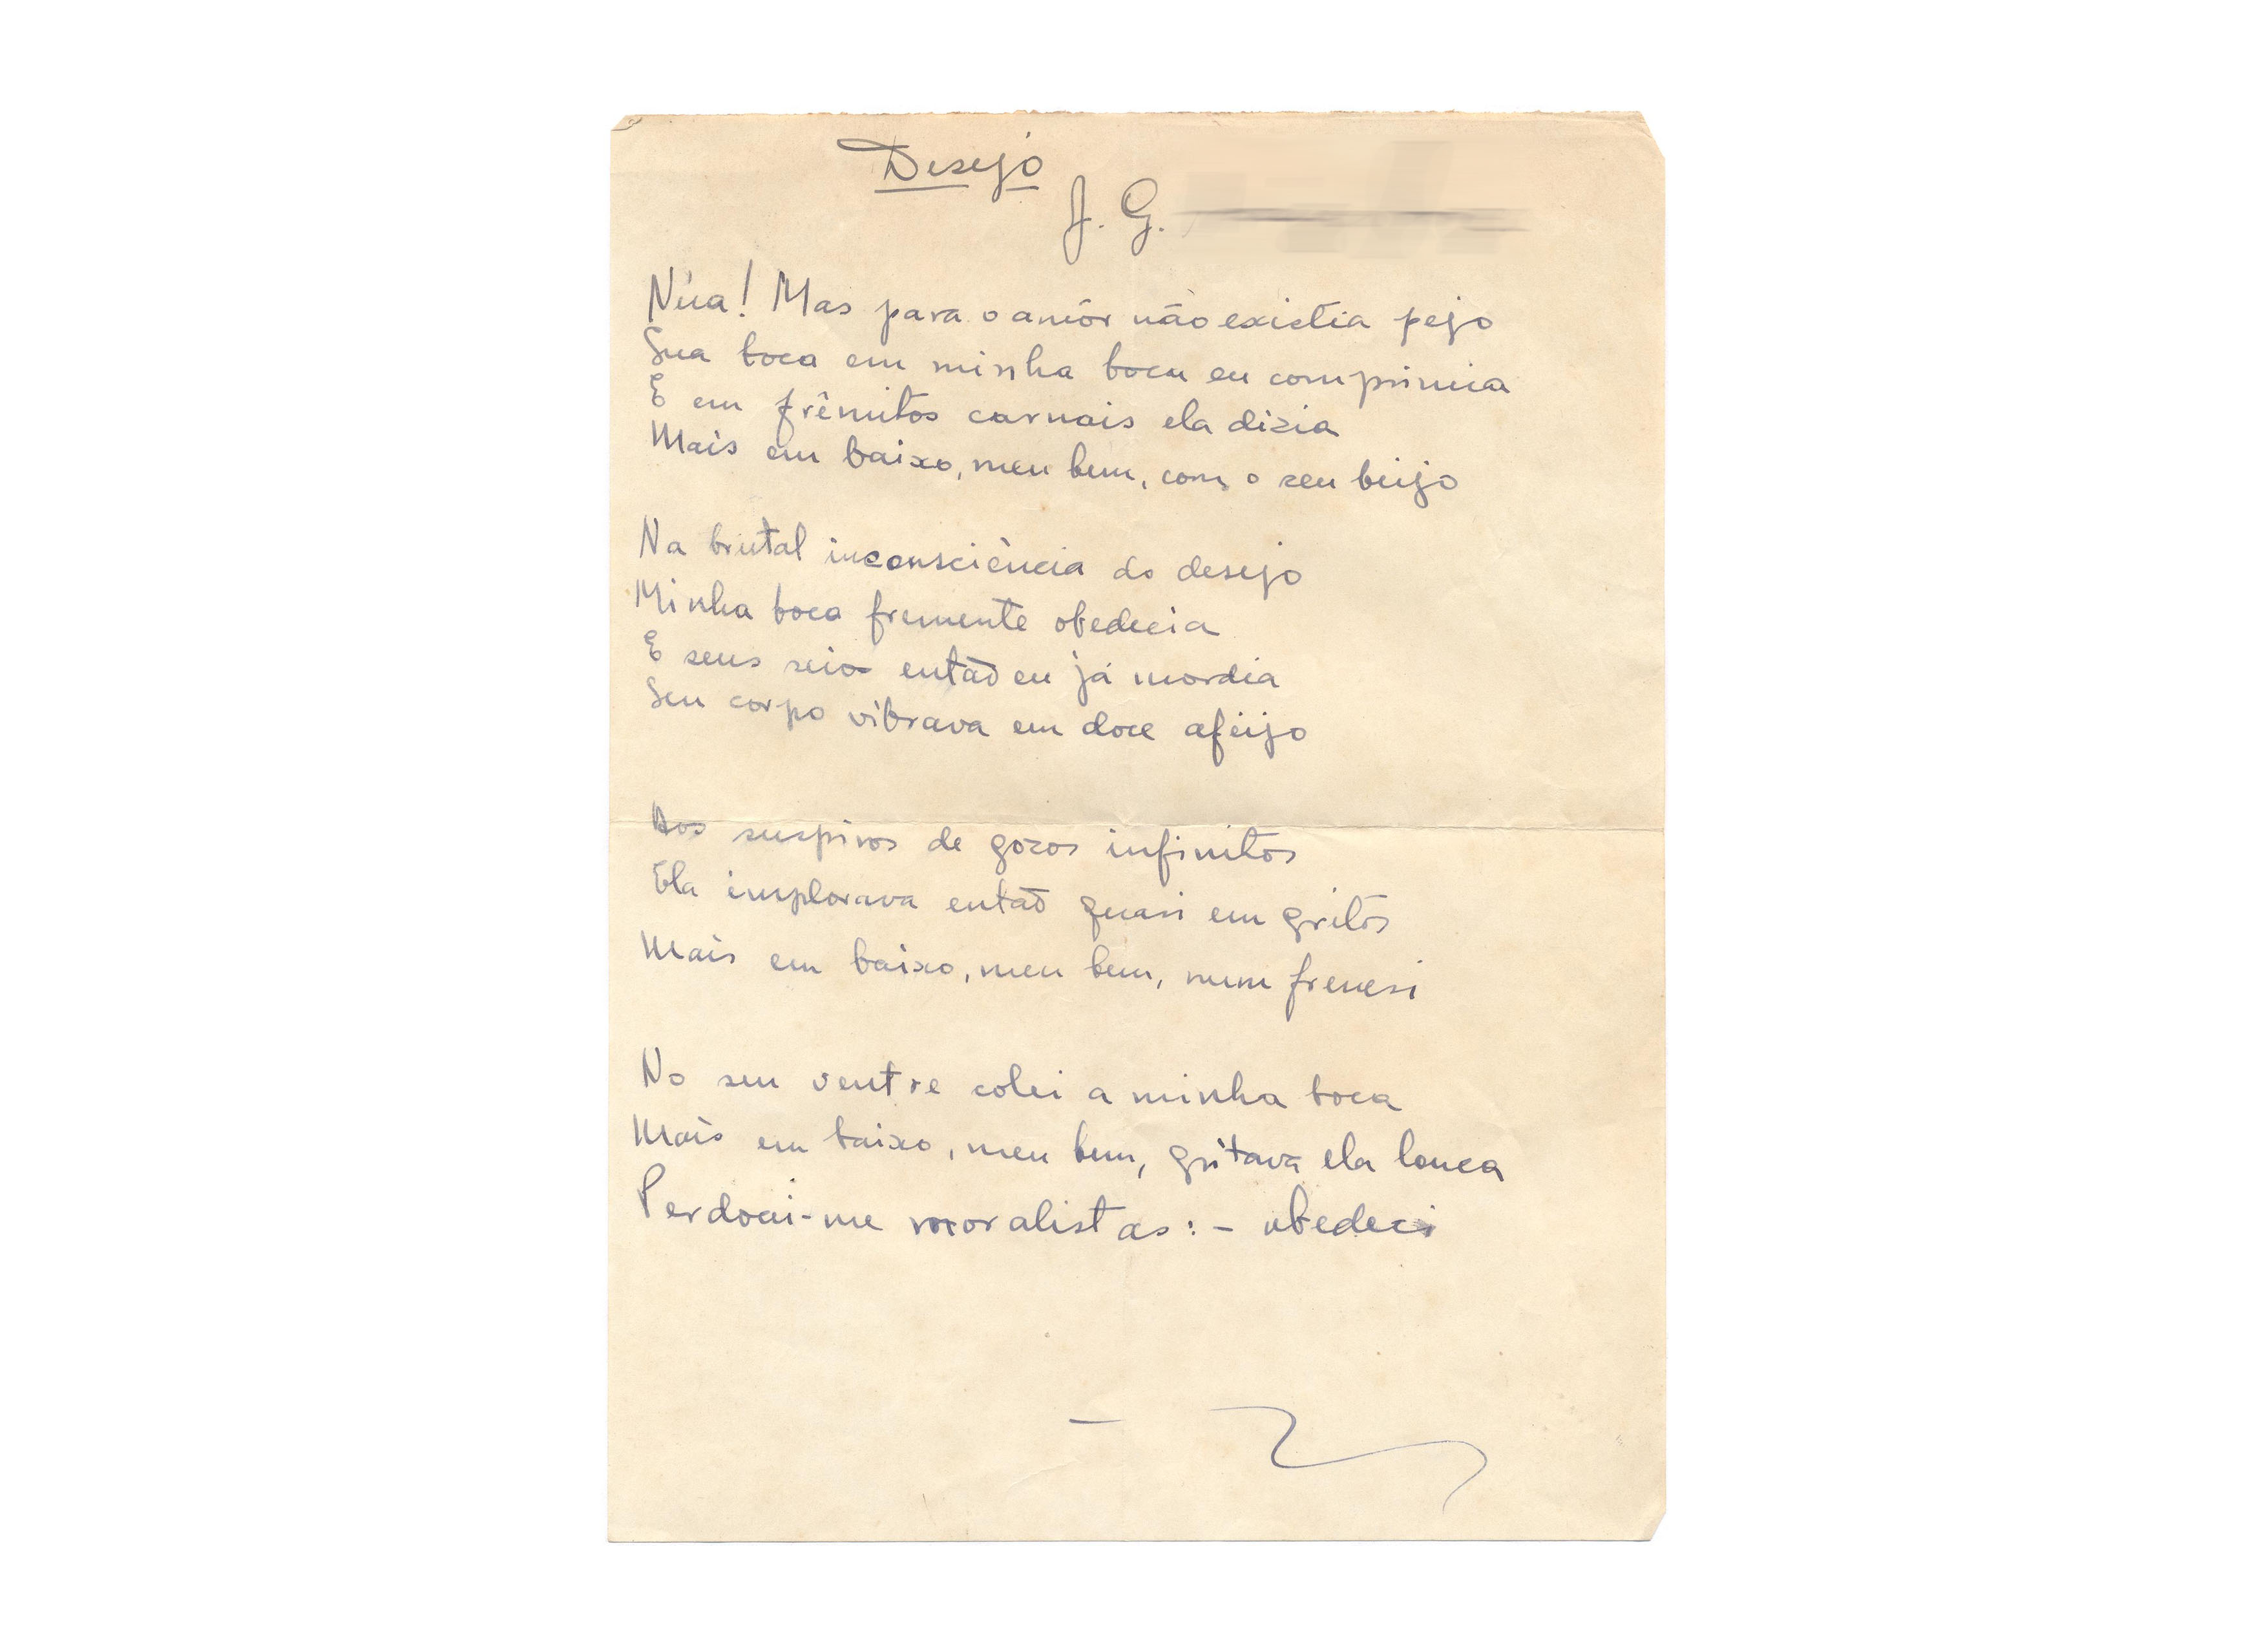 Desejo
J. G.
Núa! Mas para o amôr não existia pejo
Sua boca em minha boca eu comprimia
E em frêmitos carnais ela dizia
Mais em baixo, meu bem, com o seu beijo
Na brutal inconsciência do desejo
Minha boca fremente obedecia
E seus seios então eu já mordia
Seu corpo vibrava em doce afeijo
Aos suspiros de gozos infinitos
Ela implorava então quasi em gritos
Mais em baixo, meu bem, num frenesi
No seu ventre colei a minha boca
Mais em baixo, meu bem, gritava ela louca
Perdoai-me moralistas: - obedeci